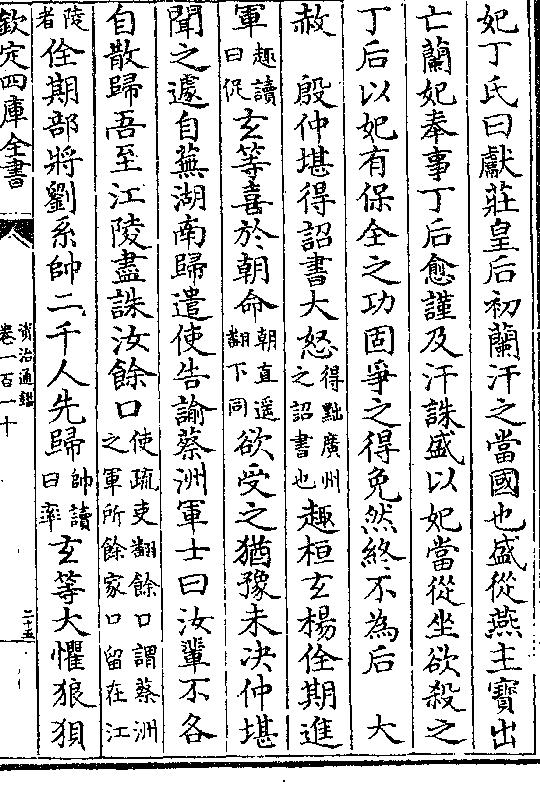 妃丁氏曰獻莊皇后初蘭汗之當國也盛從燕主寶出
亡蘭妃奉事丁后愈謹及汗誅盛以妃當從坐欲殺之
丁后以妃有保全之功固爭之得免然終不為后　大
赦　殷仲堪得詔書大怒得黜廣州之詔書也趣桓玄楊佺期進
軍趣讀曰促玄等喜於朝命朝直遥翻下同欲受之猶豫未決仲堪
聞之遽自蕪湖南歸遣使告諭蔡洲軍士曰汝輩不各
自散歸吾至江陵盡誅汝餘口使疏吏翻餘口謂蔡洲之軍所餘家口留在江
陵者佺期部將劉系帥二千人先歸帥讀曰率玄等大懼狼狽
欽定四庫全書
資治通鑑
卷一百一十
二十五